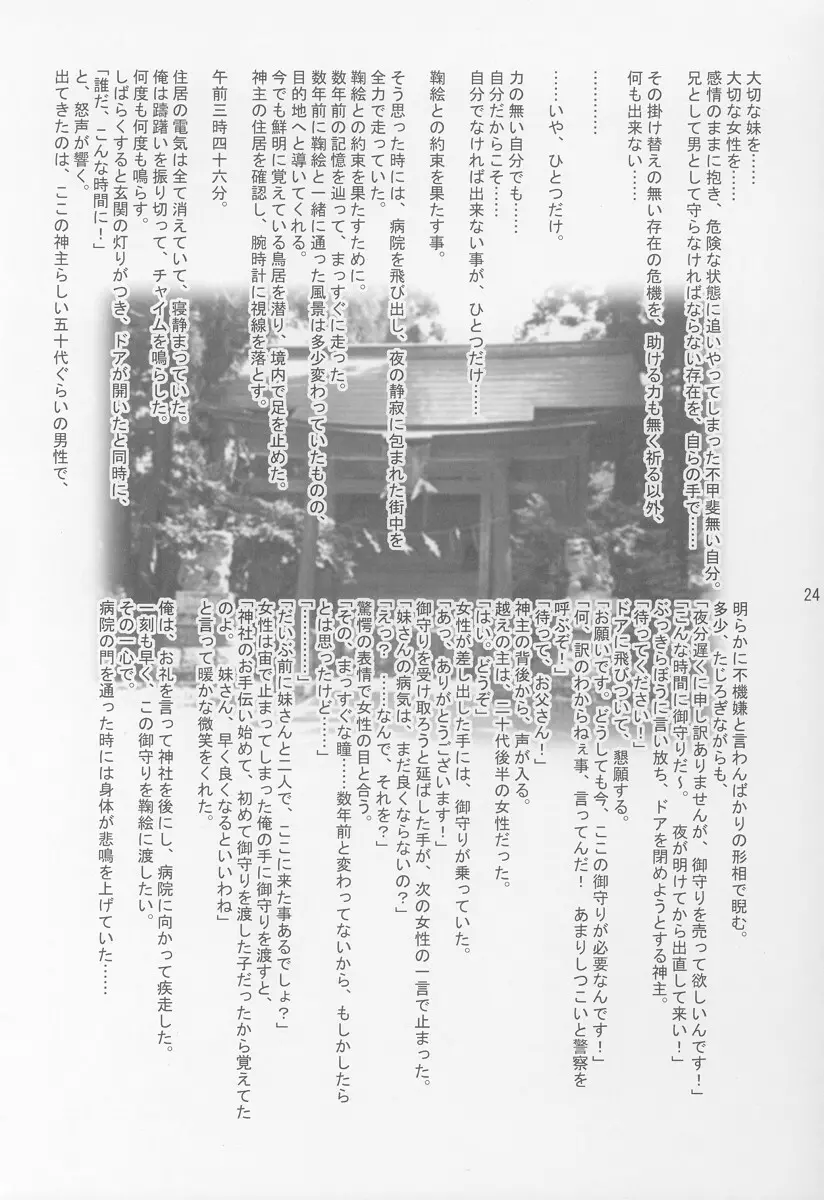 大切な妹を……
大切な女性を……
感情のままに抱き、危険な状態に追いやってしまった不甲斐無い自分。
兄として男として守らなければならない存在を、自らの手で……
その掛け替えの無い存在の危機を、助ける力も無く祈る以外、
何も出来ない……
…………
……いや、ひとつだけ。
力の無い自分でも……
自分だからこそ……
自分でなければ出来ない事が、ひとつだけ……
鞠絵との約束を果たす事。
そう思った時には、病院を飛び出し、夜の静寂に包まれた街中を
全力で走っていた。
鞠絵との約束を果たすために。
数年前の記憶を辿って、まっすぐに走った。
数年前に鞠絵と一緒に通った風景は多少変わっていたものの、
目的地へと導いてくれる。
今でも鮮明に覚えている鳥居を潜り、境内で足を止めた。
神主の住居を確認し、腕時計に視線を落とす。
午前三時四十六分。
住居の電気は全て消えていて、寝静まっていた。
俺は躊躇いを振り切って、チャイムを鳴らした。
何度も何度も鳴らす。
しばらくすると玄関の灯りがつき、ドアが開いたと同時に、
「誰だ、こんな時間に！」
と、怒声が響く。
出てきたのは、ここの神主らしい五十代ぐらいの男性で、
明らかに不機嫌と言わんばかりの形相で睨む。
多少、たじろぎながらも、
「夜分遅くに申し訳ありませんが、御守りを売って欲しいんです！」
「こんな時間に御守りだ～。　夜が明けてから出直して来い！」
ぶっきらぼうに言い放ち、ドアを閉めようとする神主。
「待ってください！」
ドアに飛びついて、懇願する。
「お願いです。どうしても今、ここの御守りが必要なんです！」
「何、訳のわからねぇ事、言ってんだ！　あまりしつこいと警察を
呼ぶぞ！」
「待って、お父さん！」
神主の背後から、声が入る。
越えの主は、二十代後半の女性だった。
「はい。どうぞ」
女性が差し出した手には、御守りが乗っていた。
「あっ、ありがとうございます！」
御守りを受け取ろうと延ばした手が、次の女性の一言で止まった。
「妹さんの病気は、まだ良くならないの？」
「えっ？　……なんで、それを？」
驚愕の表情で女性の目と合う。
「その、まっすぐな瞳……数年前と変わってないから、もしかしたら
とは思ったけど……」
「…………」
「だいぶ前に妹さんと二人で、ここに来た事あるでしょ？」
女性は宙で止まってしまった俺の手に御守りを渡すと、
「神社のお手伝い始めて、初めて御守りを渡した子だったから覚えてた
のよ。　妹さん、早く良くなるといいわね」
と言って暖かな微笑をくれた。
俺は、お礼を言って神社を後にし、病院に向かって疾走した。
一刻も早く、この御守りを鞠絵に渡したい。
その一心で。
病院の門を通った時には身体が悲鳴を上げていた……
24